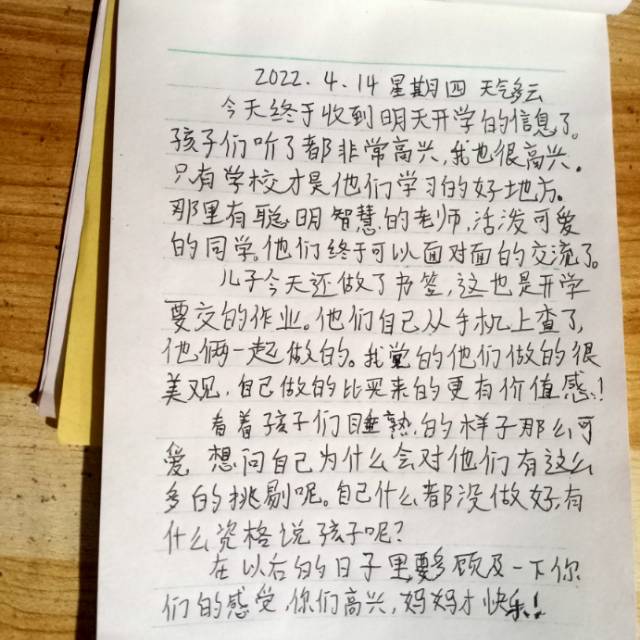 2022.4.14 星期四 天气多云
今天终于收到明天开学的信息了。
孩子们听了都非常高兴,我也很高兴。
只有学校才是他们学习的好地方。
那里有聪明智慧的老师,活泼可爱
的同学。他们终于可以面对面的交流了。
儿子今天还做了书签,这也是开学
要交的作业。他们自己从手机上查了,
他俩一起做的。我觉的他们做的很
美观,自己做的比买来的更有价值感!
看着孩子们睡熟的样子那么可
爱 想问自己为什么会对他们有这么
多的挑剔呢。自己什么都没做好,有
什么资格说孩子呢?
在以后的日子里要多顾及一下你
们的感受,你们高兴,妈妈才快乐!